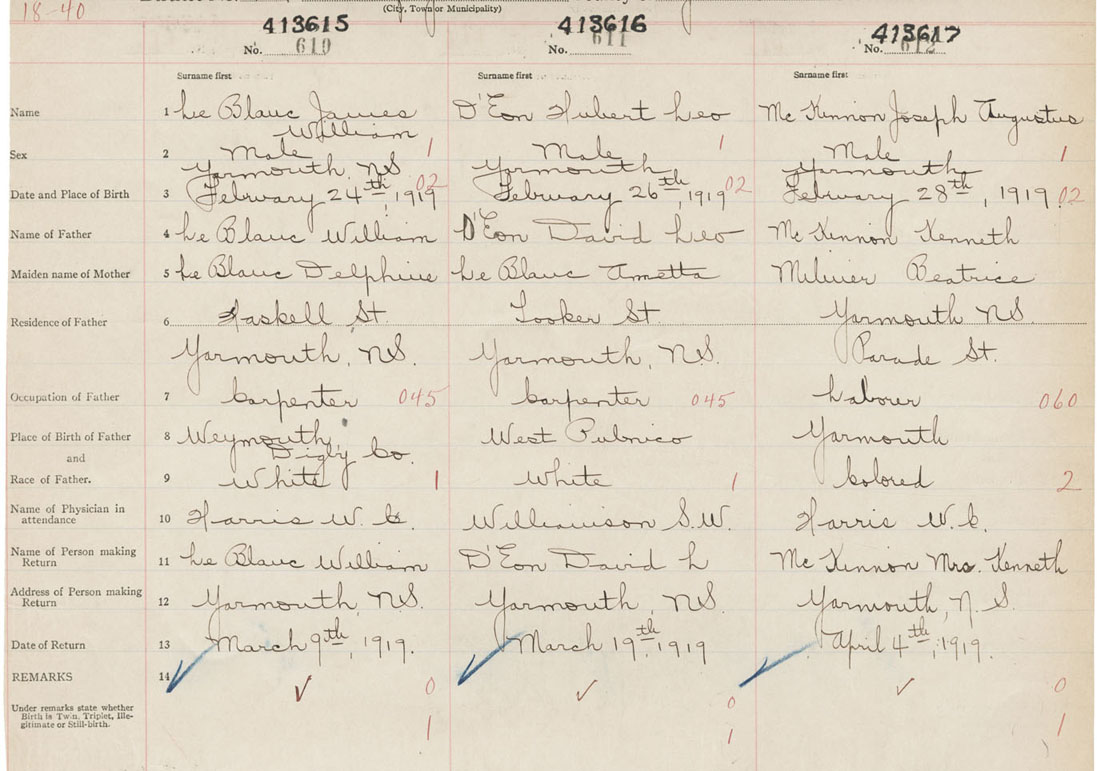 18-40
(City, Town or Municipality)
413615 413616 413617
No. 610 No. 611 No. 612
Surname first Surname first Surname first
Name 1 Le Blanc James D'Eon Hubert Leo Mc Kinnon Joseph Augustus
William
Sex 2 Male 1 Male 1 Male 1
Yarmouth, NS Yarmouth Yarmouth
Date and Place of Birth 3 February 24th, 1919 02 February 26th, 1919 02 February 28th, 1919 02
Name of Father 4 Le Blanc William D'Eon David Leo Mc Kinnon Kenneth
Maiden name of Mother 5 Le Blanc Delphine Le Blanc Ametta Beatrice
Residence of Father 6 Haskell St. Tooker St. Yarmouth NS.
Yarmouth, NS. Yarmouth, NS. Parade St.
Occupation of Father 7 Carpenter 045 Carpenter 045 Laborer 060
Place of Birth of Father 8 Weymouth, West Pubnico Yarmouth
and Digby Co.
Race of Father. 9 White 1 White 1 Colored 2
Name of Physician in
attendance 10 Harris W. C. Williamson S.W. Harris W. C.
Name of Person making
Return 11 Le Blanc William D'Eon David L Mc Kinnon Mrs. Kenneth
Address of Person making
Return 12 Yarmouth, NS. Yarmouth, NS. Yarmouth, N. S.
Date of Return 13 March 9th, 1919. March 19th, 1919 April 4th, 1919.
REMARKS 14 0 0 0
Under remarks state whether
Birth is Twin, Triplet, Ille-
gitimate or Still-birth. 1 1 1